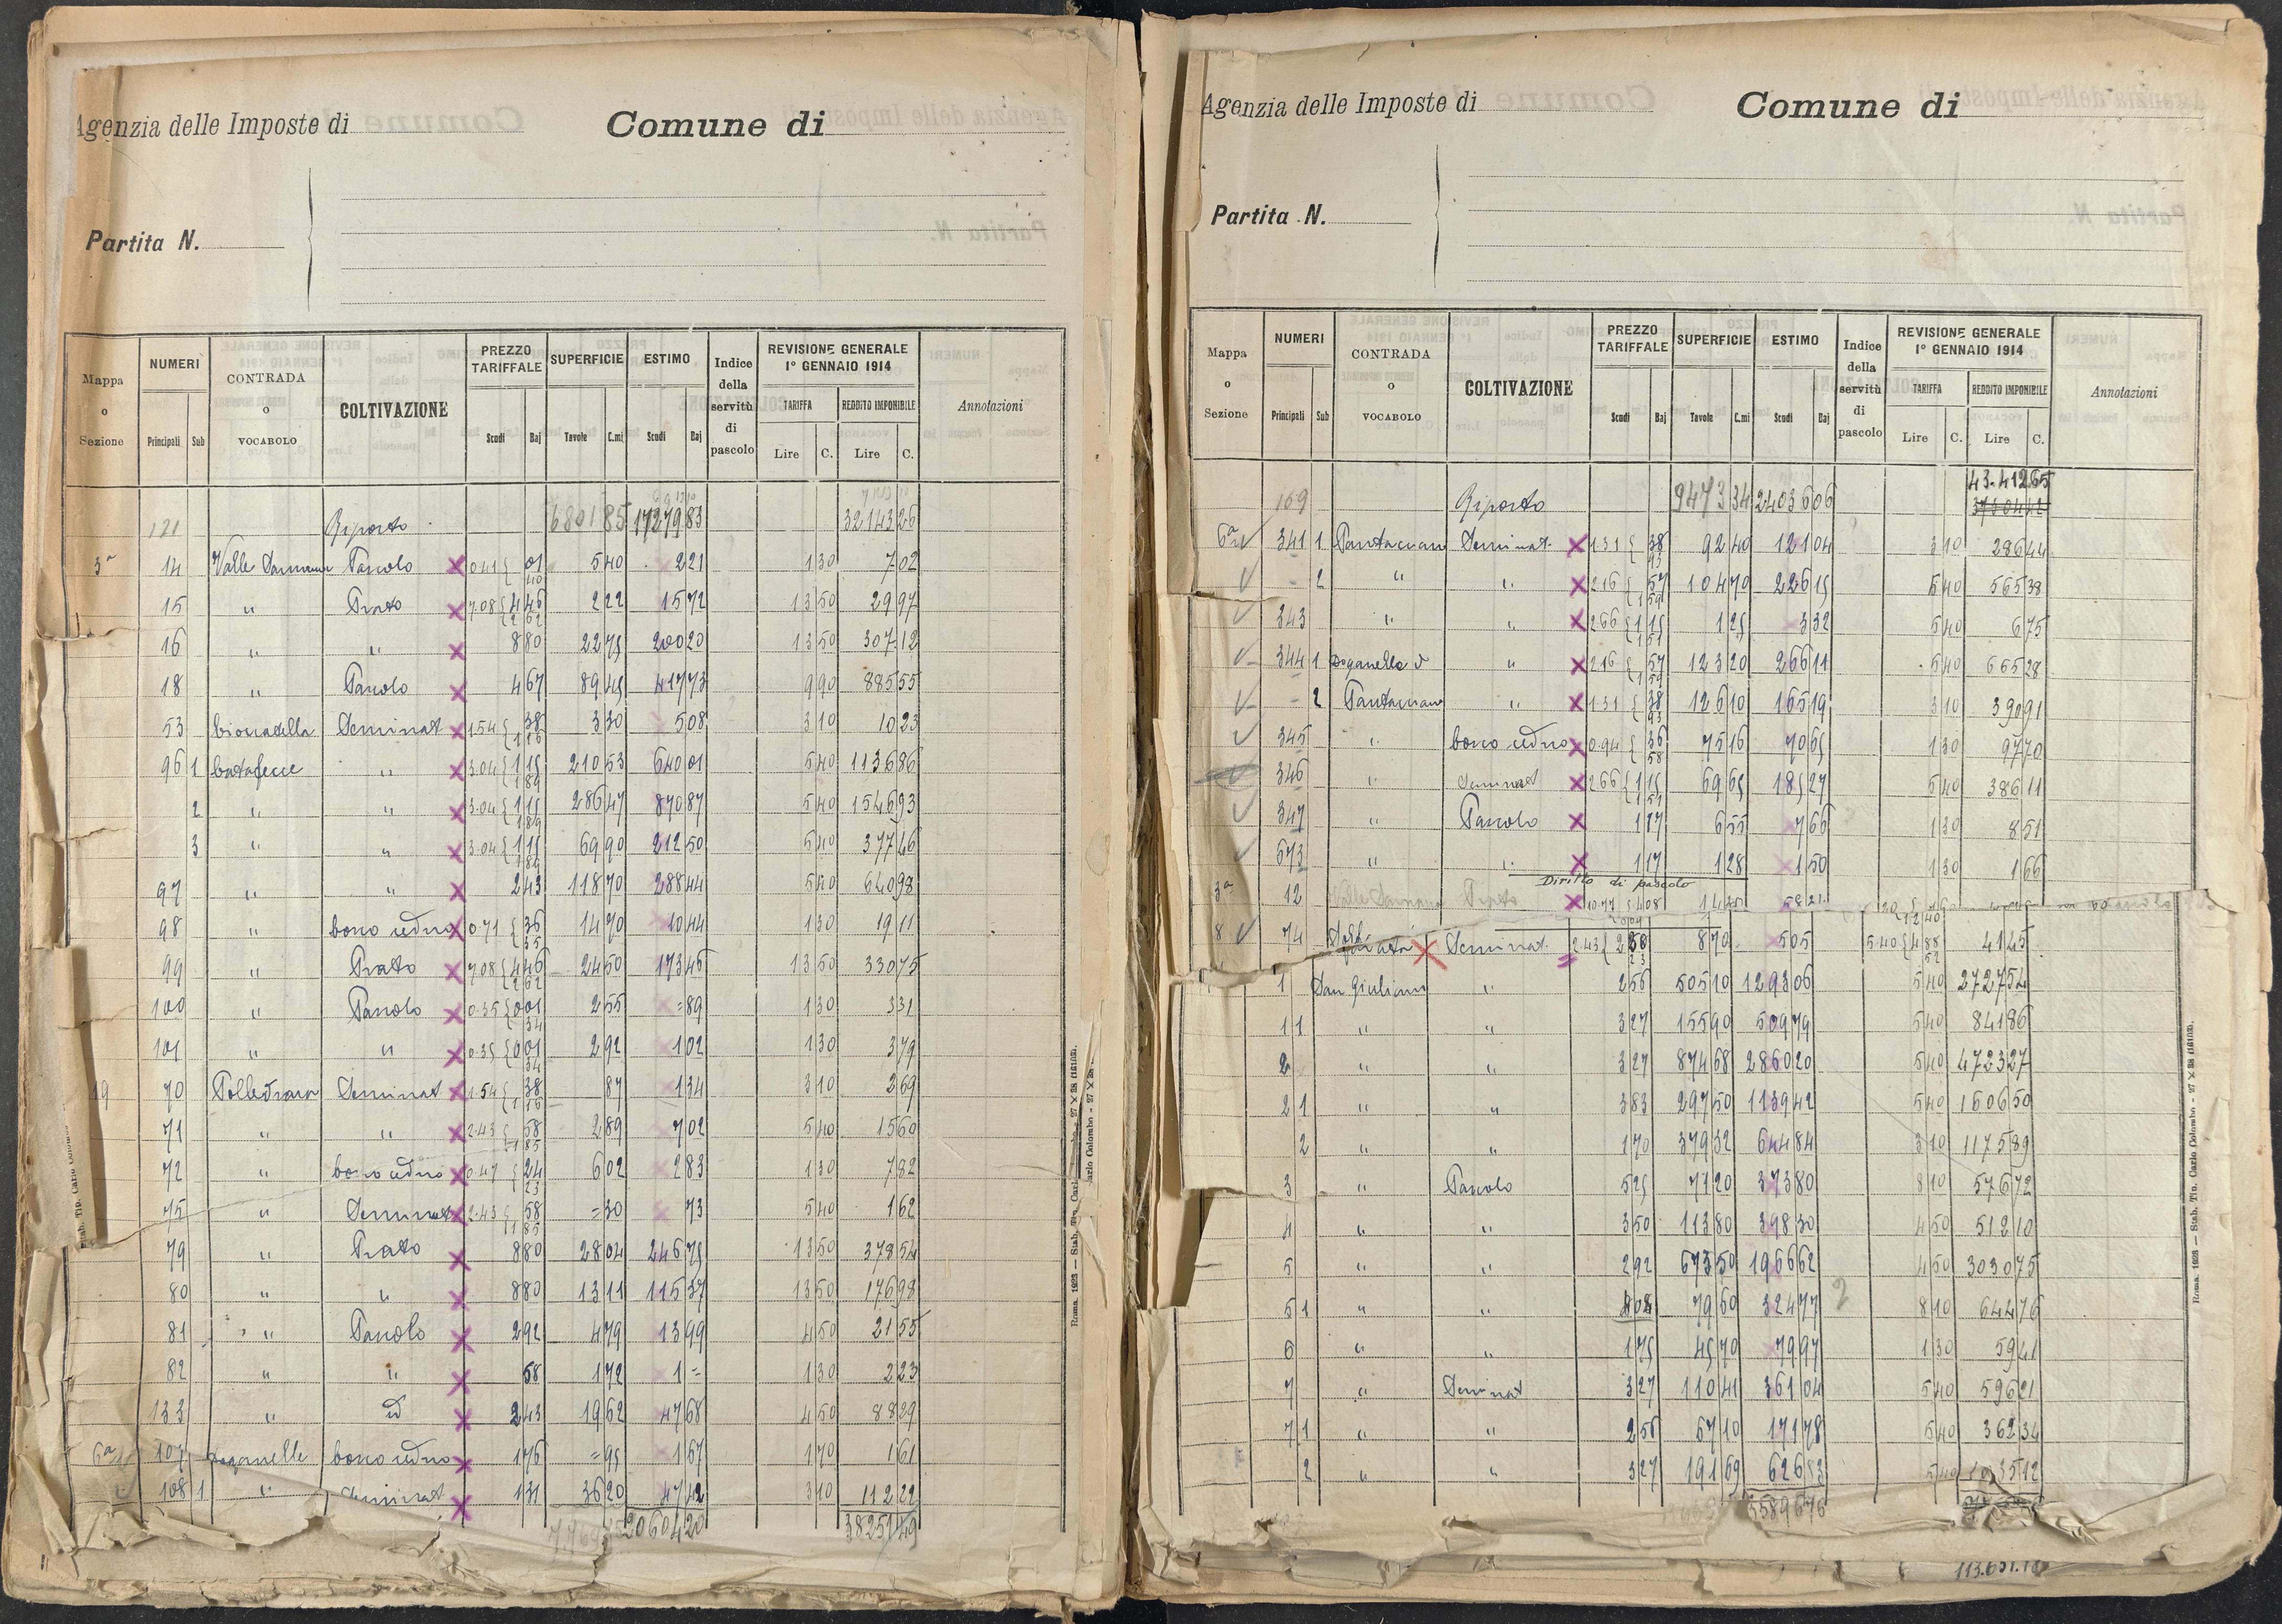 Agenzia delle Imposte di Comune di
Partita N.
Mappa o Sezione NUMERI Principali Sub CONTRADA o VOCABOLO COLTIVAZIONE PREZZO TARIFFALE Scudi Baj SUPERFICIE Tavole C.mi ESTIMO Scudi Baj Indice della servitù di pascolo REVISIONE GENERALE 1° GENNAIO 1914 TARIFFA Lire C. REDDITO IMPONIBILE Lire C. Annotazioni
121 Riporto 6801 85 17279 83 32143 26
3a 14 Valle Pascolo 0.41 { 01 40 5 40 2 21 1 30 7 02
15 " Prato 7.08 { 4 46 2 62 2 22 15 72 13 50 29 97
16 " " 8 80 22 75 200 20 13 50 307 12
18 " Pascolo 4 67 89 45 417 73 9 90 885 55
53 Seminat 1.54 { 38 1 16 3 30 5 08 3 10 10 23
96 1 " 3.04 { 1 15 1 89 210 53 640 01 5 40 1136 86
2 " " 3.04 { 1 15 1 89 286 47 870 87 5 40 1546 93
3 " " 3.04 { 1 15 1 89 69 90 212 50 5 40 377 46
97 " " 2 43 118 70 288 44 5 40 640 98
98 " bosco ceduo 0.71 { 36 35 14 70 10 44 1 30 19 11
99 " Prato 7.08 { 4 46 2 62 24 50 173 46 13 50 330 75
100 " Pascolo 0.35 { 0 01 34 2 55 = 89 1 30 3 31
101 " " 0.35 { 0 01 34 2 92 1 02 1 30 3 79
19 70 Polledrara Seminat 1.54 { 38 1 16 87 1 34 3 10 2 69
71 " " 2.43 { 58 1 85 2 89 7 02 5 40 15 60
72 " bosco ceduo 0.47 { 24 23 6 02 2 83 1 30 7 82
75 " Seminat 2.43 { 58 1 85 = 30 73 5 40 1 62
79 " Prato 8 80 28 04 246 75 13 50 378 54
80 " " 8 80 13 11 115 37 13 50 176 98
81 " Pascolo 2 92 4 79 13 99 4 50 21 55
82 " " 58 1 72 1 = 1 30 2 23
133 " id 2 43 19 62 47 68 4 50 88 29
6a 107 bosco ceduo 1 76 = 95 1 67 1 70 1 61
108 1 " Seminat 1 31 36 20 47 42 3 10 112 22
20604 20 38251 49
Roma, 1923 — Stab. Tip. Carlo Colombo - 27 × 38
Agenzia delle Imposte di Comune di
Partita N.
Mappa o Sezione NUMERI Principali Sub CONTRADA o VOCABOLO COLTIVAZIONE PREZZO TARIFFALE Scudi Baj SUPERFICIE Tavole C.mi ESTIMO Scudi Baj Indice della servitù di pascolo REVISIONE GENERALE 1° GENNAIO 1914 TARIFFA Lire C. REDDITO IMPONIBILE Lire C. Annotazioni
43.412 65
169 Riporto 9473 34 24036 06
6a 341 1 Seminat. 1.31 { 38 93 92 40 121 04 3 10 286 44
- 2 " " 2.16 { 57 1 59 104 70 226 15 5 40 565 38
343 " " 2.66 { 1 15 1 51 1 25 3 32 5 40 6 75
344 1 " 2.16 { 57 1 59 123 20 266 11 5 40 665 28
- 2 " 1.31 { 38 93 126 10 165 19 3 10 390 91
345 " bosco ceduo 0.94 { 36 58 75 16 70 65 1 30 97 70
346 " Seminat 2.66 { 1 15 1 51 69 65 185 27 5 40 386 11
347 " Pascolo 1 17 6 55 7 66 1 30 8 51
673 " " 1 17 1 28 1 50 1 30 1 66
Diritto di pascolo
3a 12 Valle Prato
8 74 Seminat. 2.43 8 70 5 05 5.40 41 45
1 San Giuliano " 2 56 505 10 1293 06 5 40 2727 54
1 1 " " 3 27 155 90 509 79 5 40 841 86
2 " " 3 27 874 68 2860 20 5 40 4723 27
2 1 " " 3 83 297 50 1139 42 5 40 1606 50
2 " " 1 70 379 32 644 84 3 10 1175 89
3 " Pascolo 5 25 71 20 373 80 8 10 576 72
4 " " 3 50 113 80 398 30 4 50 512 10
5 " " 2 92 673 50 1966 62 4 50 3030 75
5 1 " " 4 08 79 60 324 77 8 10 644 76
6 " " 1 75 45 70 79 97 1 30 59 41
7 " Seminat 3 27 110 41 361 04 5 40 596 21
7 1 " " 2 56 67 10 171 78 5 40 362 34
2 " " 3 27 191 69 626 83 5 40 1035 12
Roma, 1923 — Stab. Tip. Carlo Colombo - 27 × 38